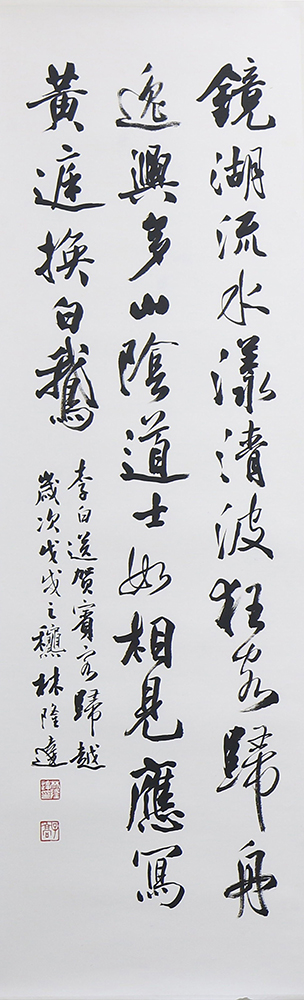 鏡湖流水漾清波狂客歸舟
逸興多山陰道士如相見應寫
黃庭換白鵝
李白送賀賓客歸越
歲次戊戌之穐林隆達